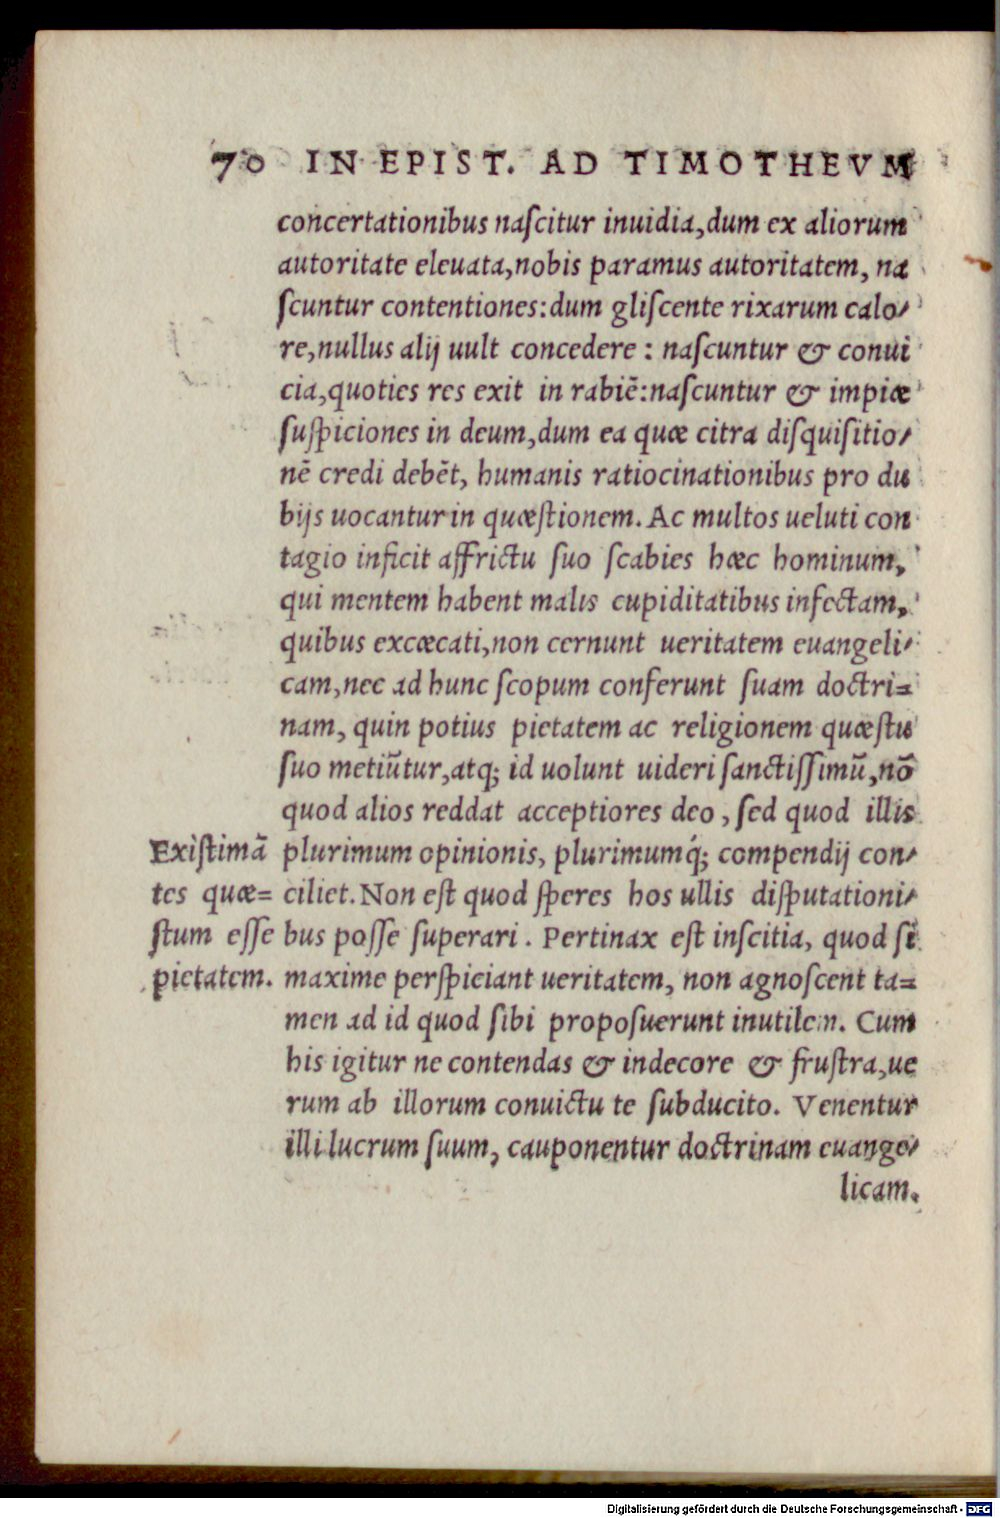 70 IN EPIST. AD TIMOTHEVM
concertationibus naſcitur inuidia, dum ex aliorum
autoritate eleuata, nobis paramus autoritatem, na
ſcuntur contentiones: dum gliſcente rixarum calo-
re, nullus alij uult concedere: naſcuntur & conui
cia, quoties res exit in rabiẽ: naſcuntur & impiæ
ſuſpiciones in deum, dum ea quæ citra diſquiſitio-
nẽ credi debẽt, humanis ratiocinationibus pro du
bijs uocantur in quæſtionem. Ac multos ueluti con
tagio inficit affrictu ſuo ſcabies hæc hominum,
qui mentem habent malis cupiditatibus infectam,
quibus excæcati, non cernunt ueritatem euangeli-
cam, nec ad hunc ſcopum conferunt ſuam doctri=
nam, quin potius pietatem ac religionem quæſtu
ſuo metiũtur, atq; id uolunt uideri ſanctiſſimũ, nõ
quod alios reddat acceptiores deo, ſed quod illis
Exiſtimã plurimum opinionis, plurimumq́; compendij con-
tes quæ= ciliet. Non eſt quod ſperes hos ullis diſputationi-
ſtum eſſe bus poſſe ſuperari. Pertinax eſt inſcitia, quod ſi
pietatem. maxime perſpiciant ueritatem, non agnoſcent ta=
men ad id quod ſibi propoſuerunt inutilem. Cum
his igitur ne contendas & indecore & fruſtra, ue
rum ab illorum conuictu te ſubducito. Venentur
illi lucrum ſuum, cauponentur doctrinam euange-
licam.
Digitalisierung gefördert durch die Deutsche Forschungsgemeinschaft - DFG